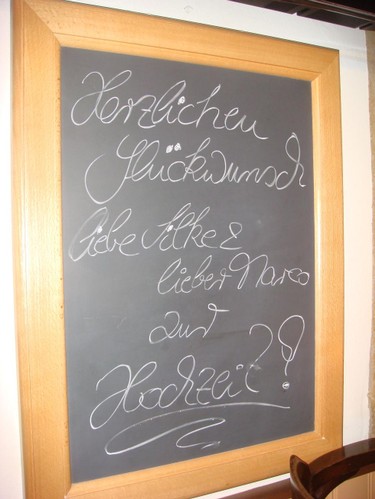 Herzlichen
Glückwunsch
liebe Silke &
lieber Marco
zur
Hochzeit!